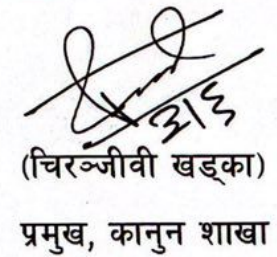 ३।६
(चिरञ्जीवी खड्का)
प्रमुख, कानुन शाखा